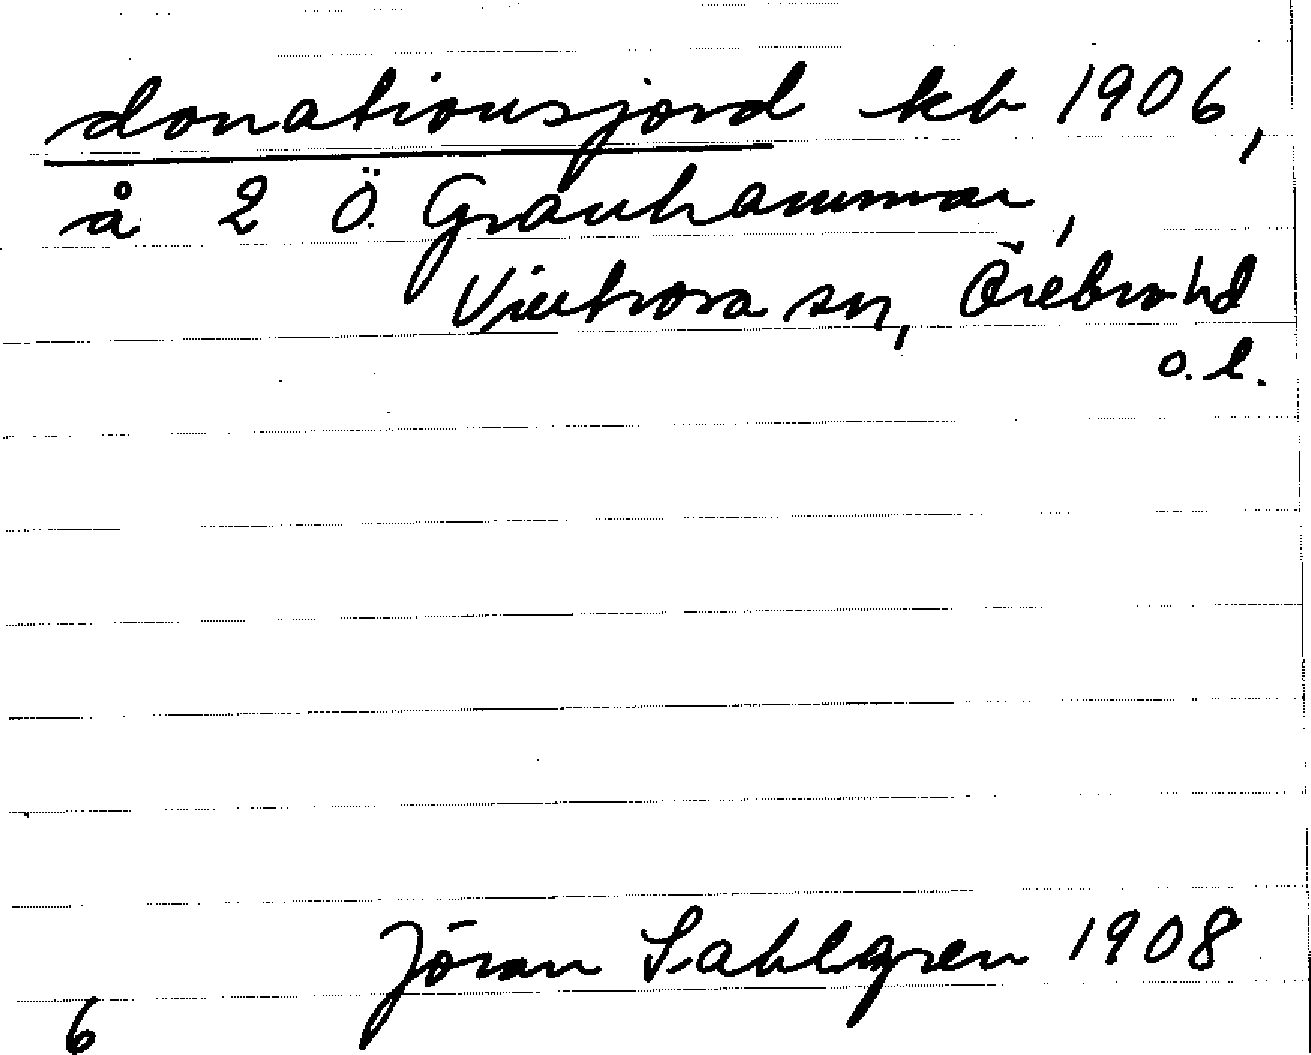 donationsjord kb 1906,
å 2 Ö. Granhammar,
Vintrosa sn, Örebro hd
o.l.
Jöran Sahlgren 1908
6